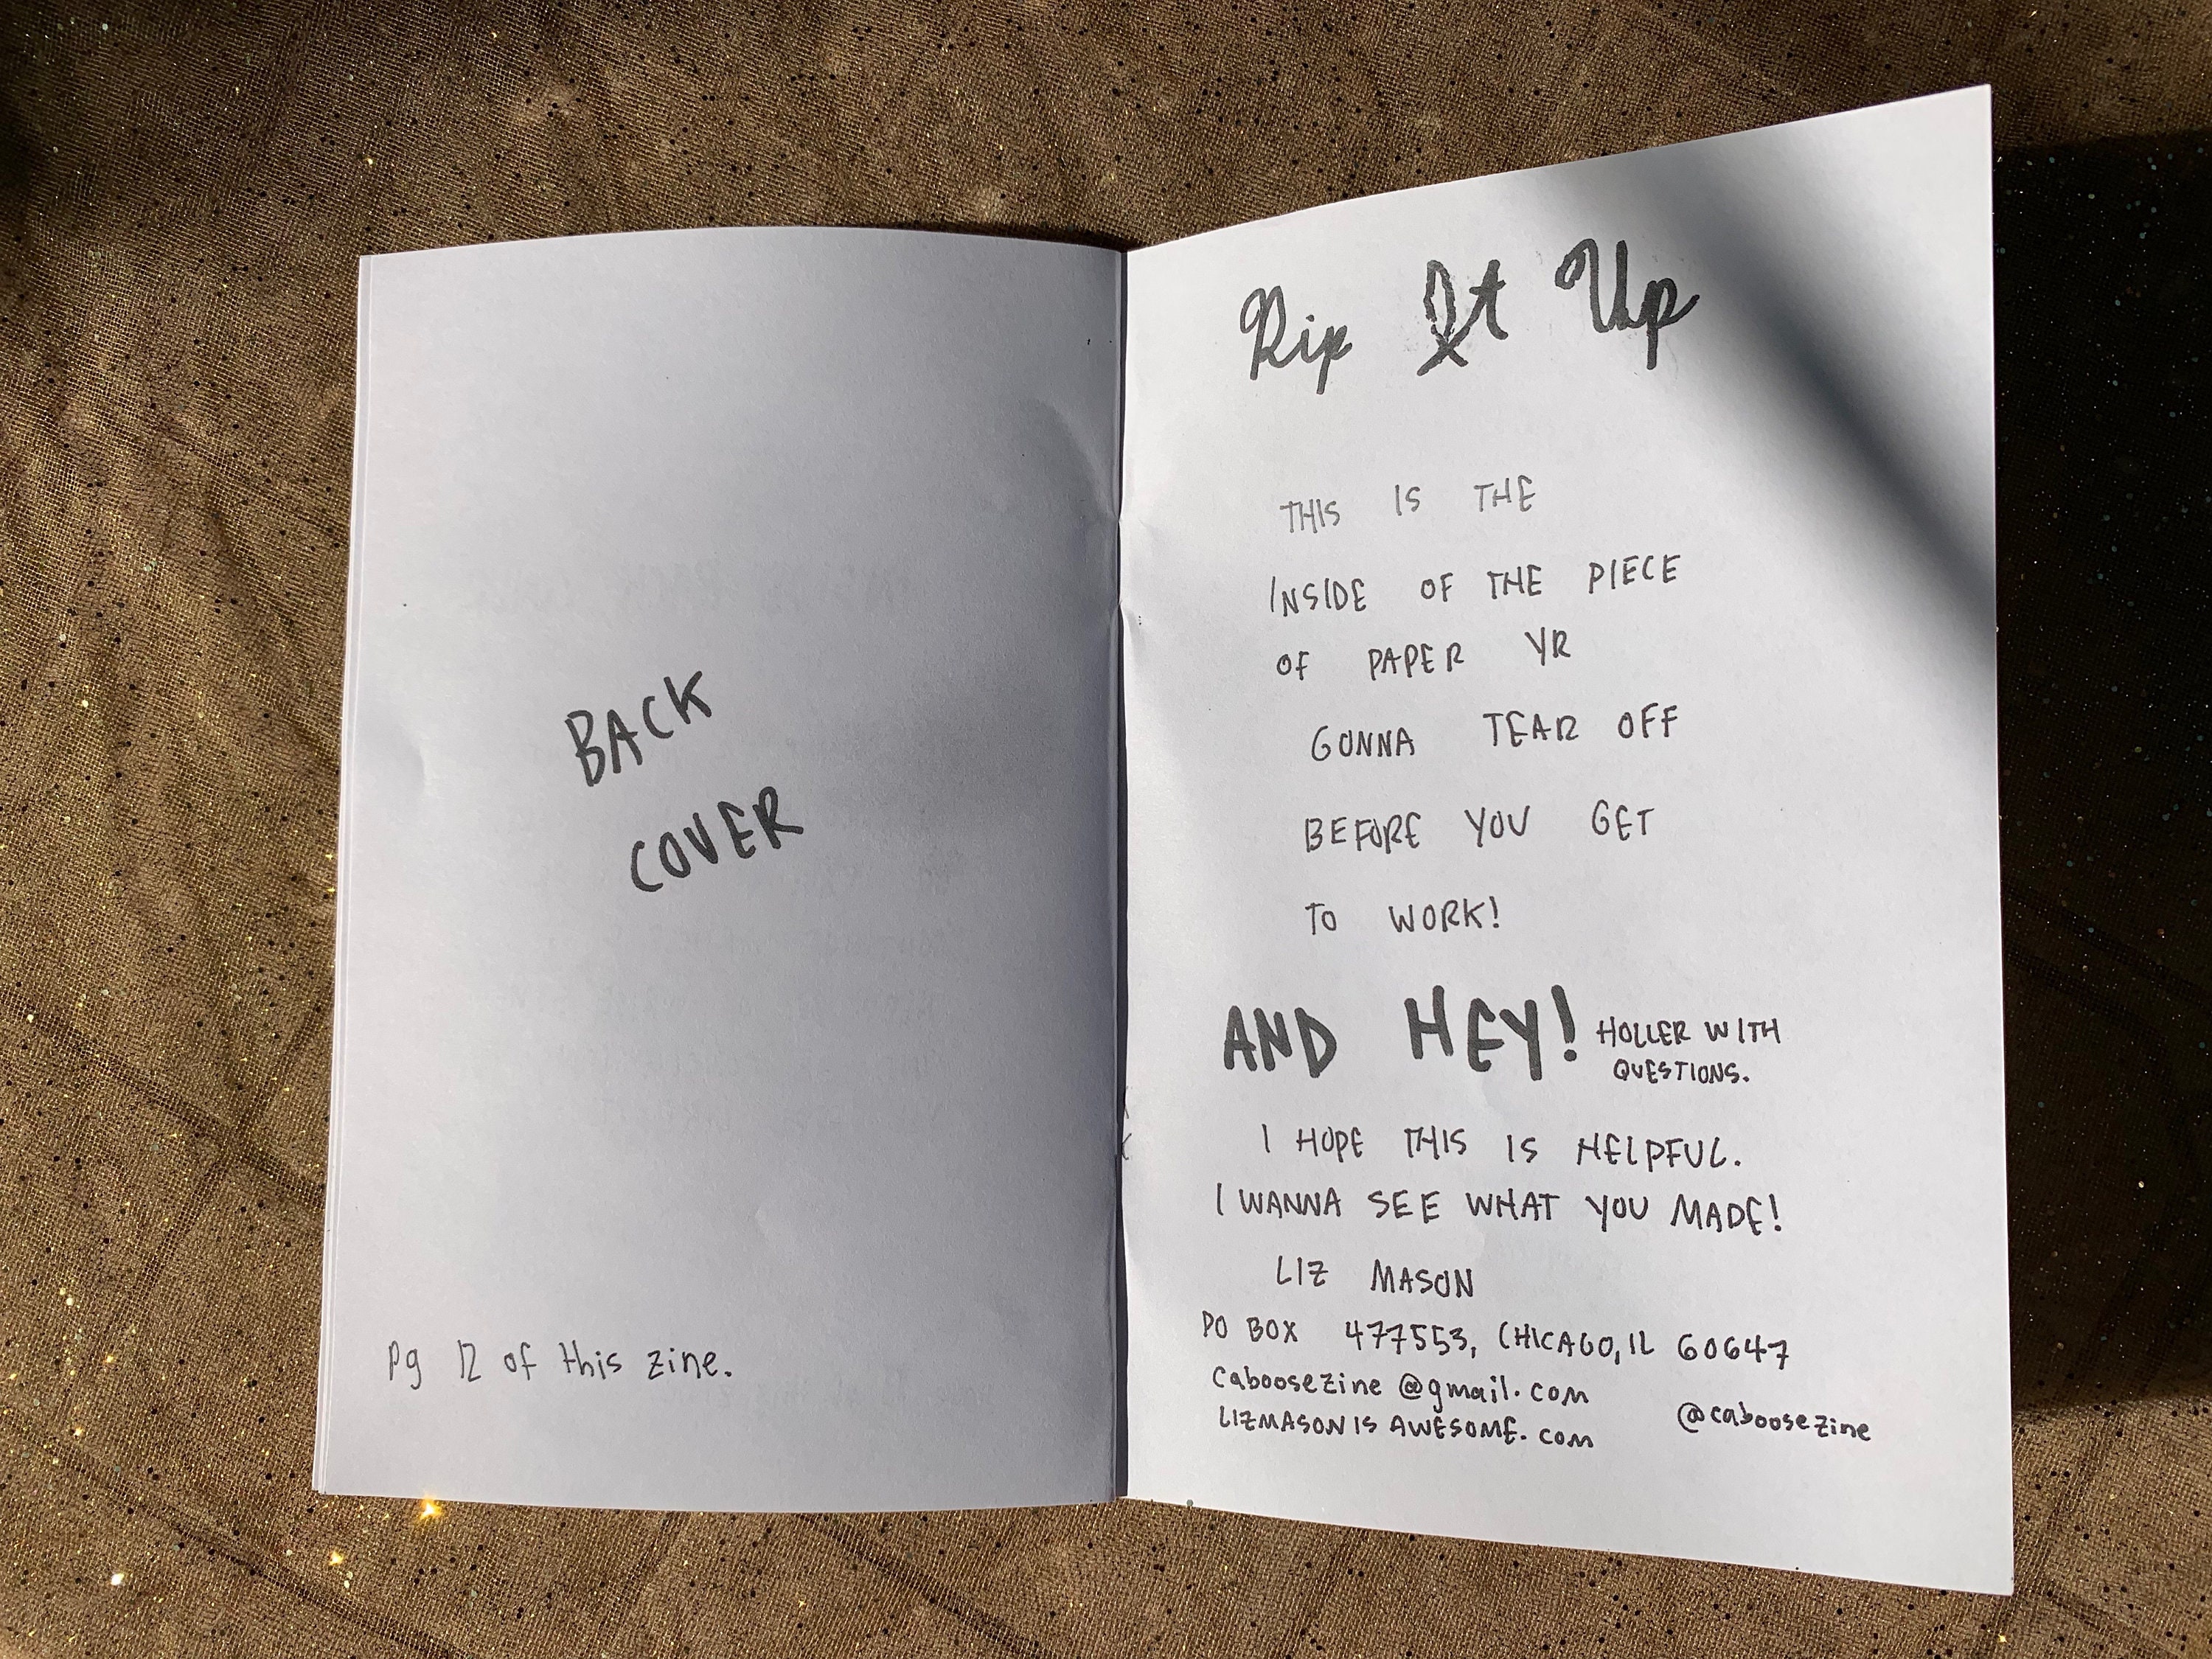 BACK
COVER
Pg 12 of this zine.
Rip It Up
THIS IS THE
INSIDE OF THE PIECE
OF PAPER YR
GONNA TEAR OFF
BEFORE YOU GET
TO WORK!
AND HEY! HOLLER WITH
QUESTIONS.
I HOPE THIS IS HELPFUL.
I WANNA SEE WHAT YOU MADE!
LIZ MASON
PO BOX 477553, CHICAGO, IL 60647
caboosezine@gmail.com
@caboosezine
LIZMASONISAWESOME.com